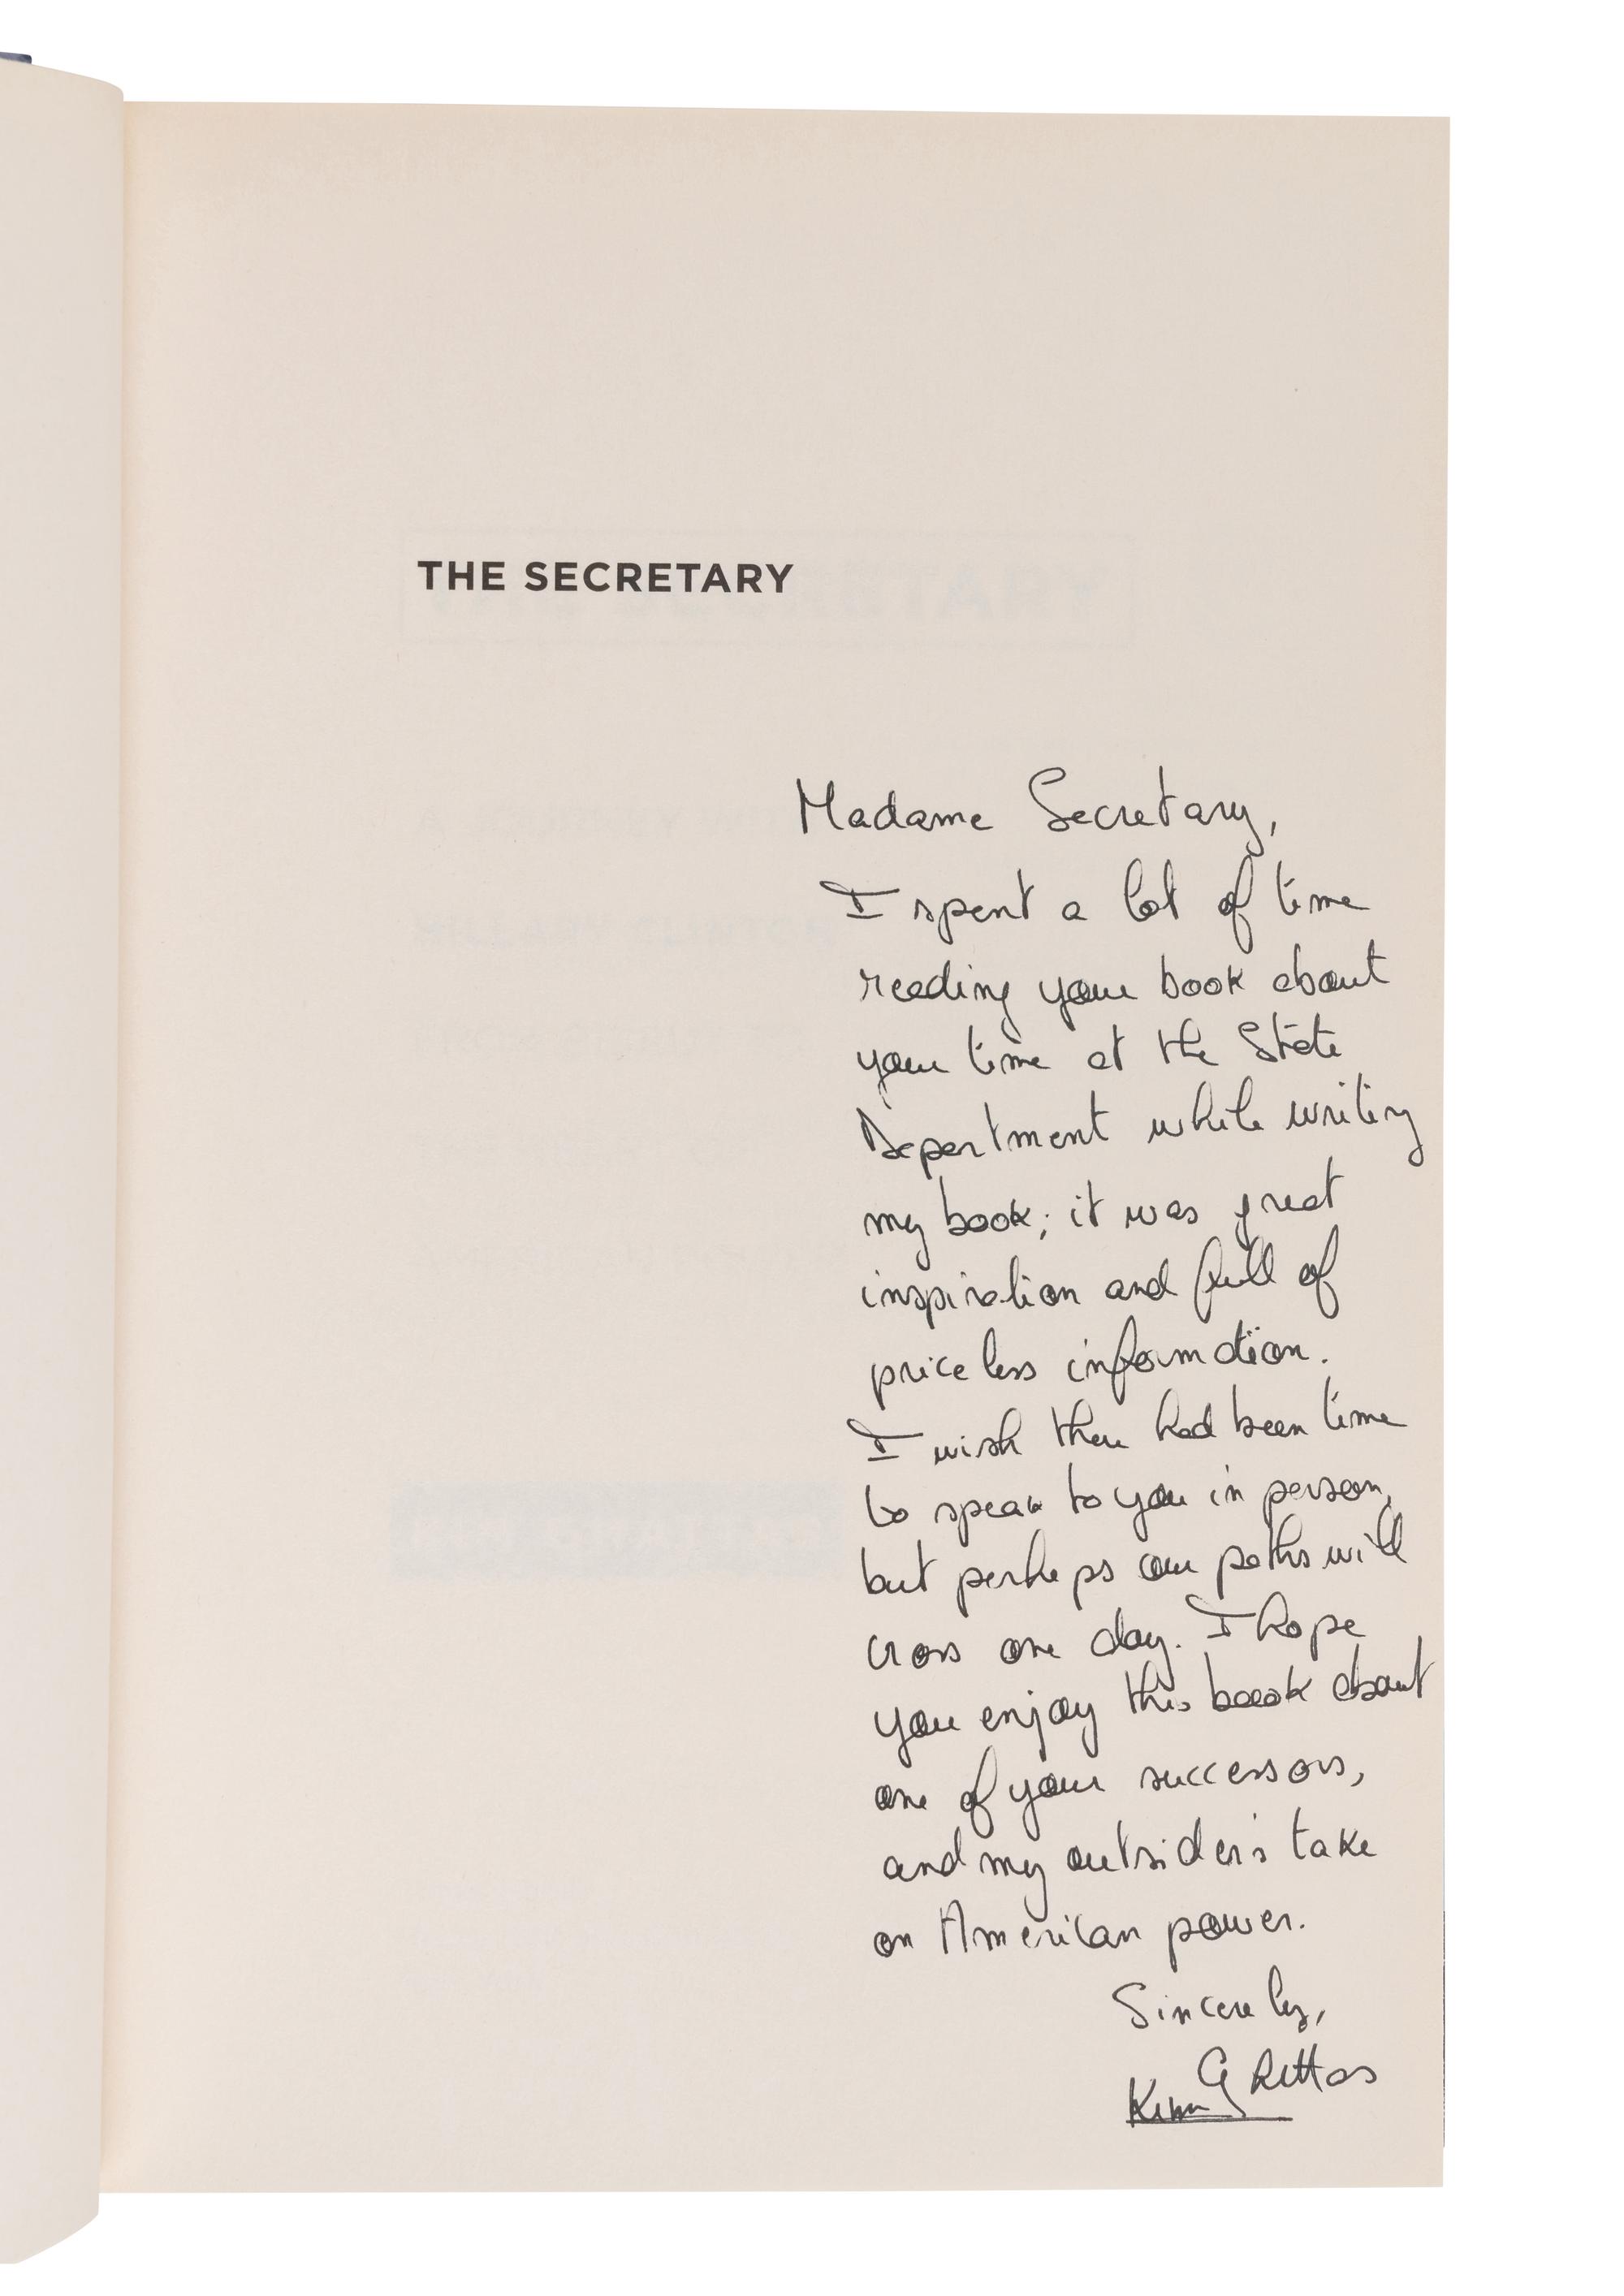 THE SECRETARY
Madame Secretary,
I spent a lot of time
reading your book about
your time at the State
Department while writing
my book; it was great
inspiration and full of
priceless information.
I wish there had been time
to speak to you in person,
but perhaps our paths will
cross one day. I hope
you enjoy this book about
one of your successors,
and my outsider's take
on American power.
Sincerely,
Kim Ghattas